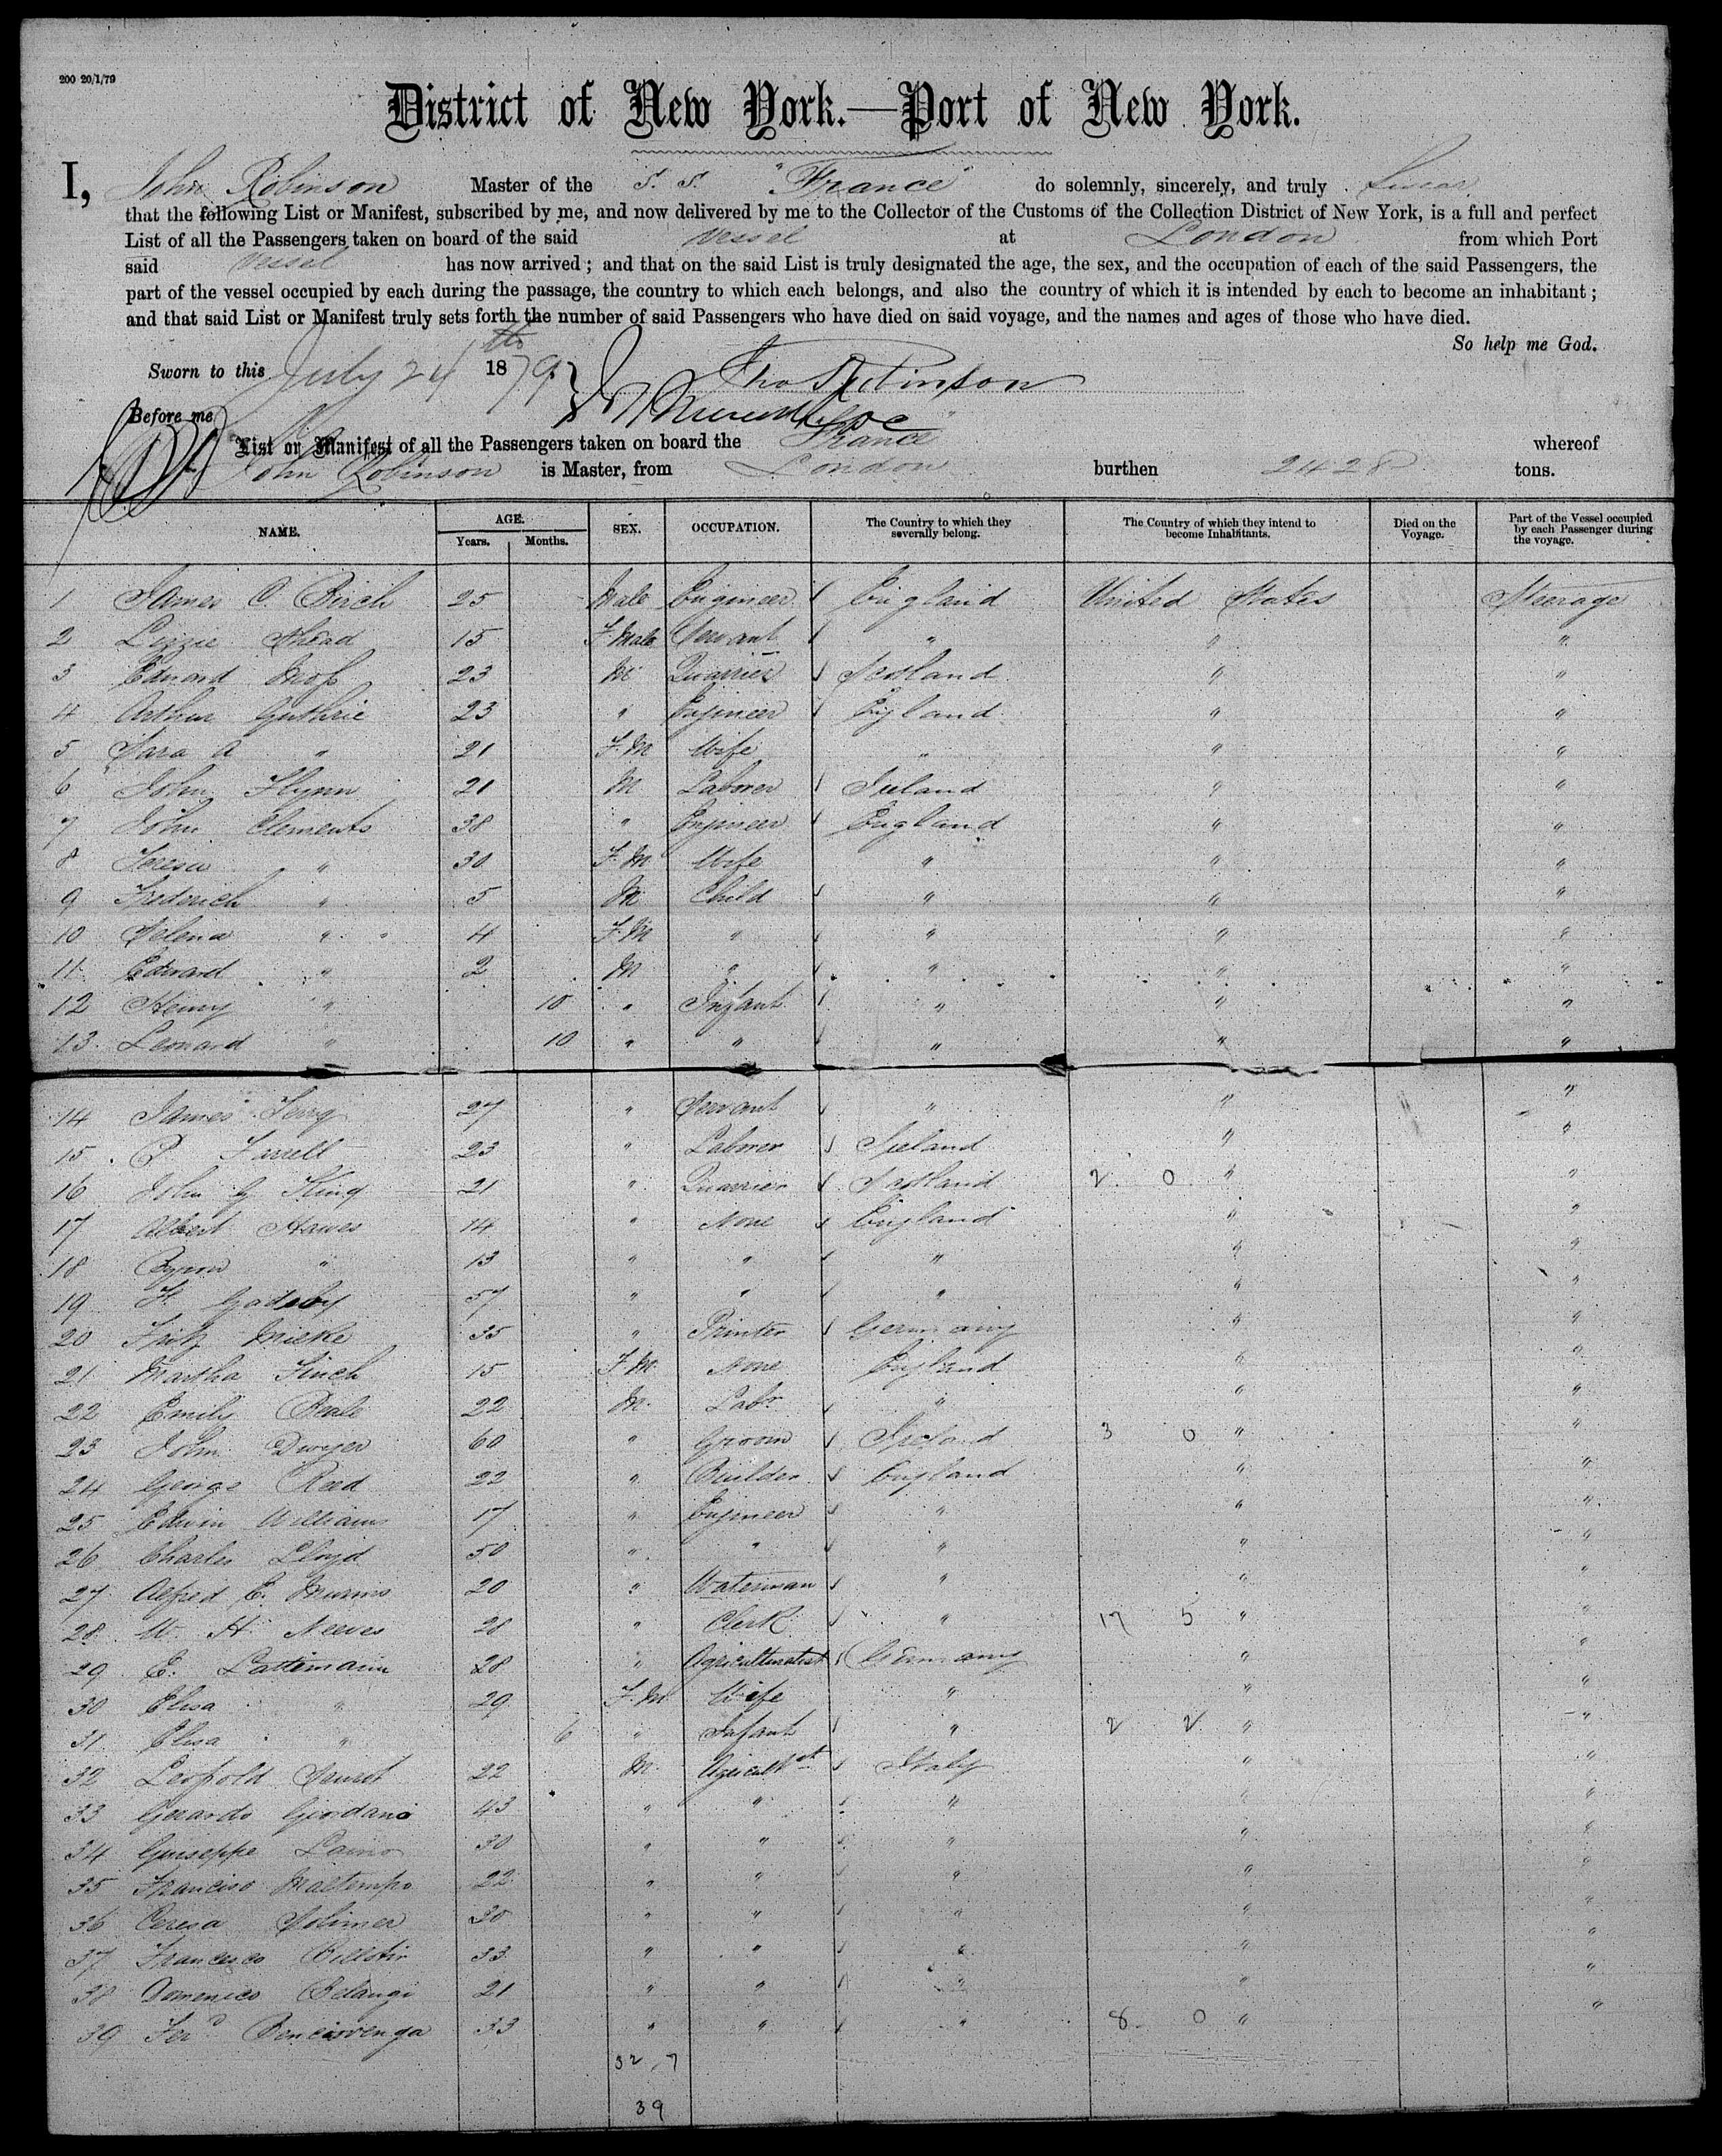 200 20/1/79
District of New York.—Port of New York.
I, John Robinson Master of the S. S. "France" do solemnly, sincerely, and truly swear
that the following List or Manifest, subscribed by me, and now delivered by me to the Collector of the Customs of the Collection District of New York, is a full and perfect
List of all the Passengers taken on board of the said Vessel at London from which Port
said Vessel has now arrived; and that on the said List is truly designated the age, the sex, and the occupation of each of the said Passengers, the
part of the vessel occupied by each during the passage, the country to which each belongs, and also the country of which it is intended by each to become an inhabitant;
and that said List or Manifest truly sets forth the number of said Passengers who have died on said voyage, and the names and ages of those who have died.
So help me God.
Sworn to this July 24th 1879 Jno Robinson
Before me
List or Manifest of all the Passengers taken on board the "France" whereof
John Robinson is Master, from London burthen 2428 tons.
NAME. AGE. Years. Months. SEX. OCCUPATION. The Country to which they severally belong. The Country of which they intend to become Inhabitants. Died on the Voyage. Part of the Vessel occupied by each Passenger during the voyage.
1 James C. Birch 25 Male Engineer England United States Steerage
2 Lizzie 15 F. Male Servant " " "
3 Edward Moss 23 M Quarrier Scotland " "
4 Arthur Guthrie 23 " Engineer England " "
5 Sara A " 21 F. M Wife " " "
6 John Flynn 21 M Laborer Ireland " "
7 John Clements 38 " Engineer England " "
8 Teresa " 30 F. M Wife " " "
9 Frederick " 5 M Child " " "
10 Selena " 4 F. M " " " "
11 Edward " 2 M " " " "
12 Henry " 10 " Infant " " "
13 Leonard " 10 " " " " "
14 James Terry 27 " Servant " " "
15 P Farrell 23 " Laborer Ireland " "
16 John G King 21 " Quarrier Scotland 2 0 " "
17 Albert Hawes 14 " None England " "
18 Byron " 13 " " " " "
19 Gadsby 57 " " " " "
20 Fritz Mielke 35 " Printer Germany " "
21 Martha Finch 15 F. M. None England " "
22 Emily Beale 22 M. Labr " " "
23 John Dwyer 60 " Groom Ireland 3 0 " "
24 George Reed 22 " Builder England " "
25 Edwin Williams 17 " Engineer " " "
26 Charles Lloyd 50 " " " " "
27 Alfred E. 20 " Waterman " " "
28 W. H. Neeves 28 " Clerk " 17 5 " "
29 E. Lattemann 28 " Agriculturalist Germany " "
30 Elisa " 29 F. M Wife " " "
31 Elisa " 6 " Infant " 2 2 " "
32 Leopold 22 M. Agricultst Italy " "
33 Gerardo Giordano 43 " " " " "
34 Guiseppe Laino 30 " " " " "
35 Francisco Maltempo 22 " " " " "
36 Ceresa 30 " " " " "
37 Francesco 33 " " " " "
38 Domenico Belangi 21 " " " " "
39 Ferd Bencivenga 33 " " " 8 0 " "
32, 7
39